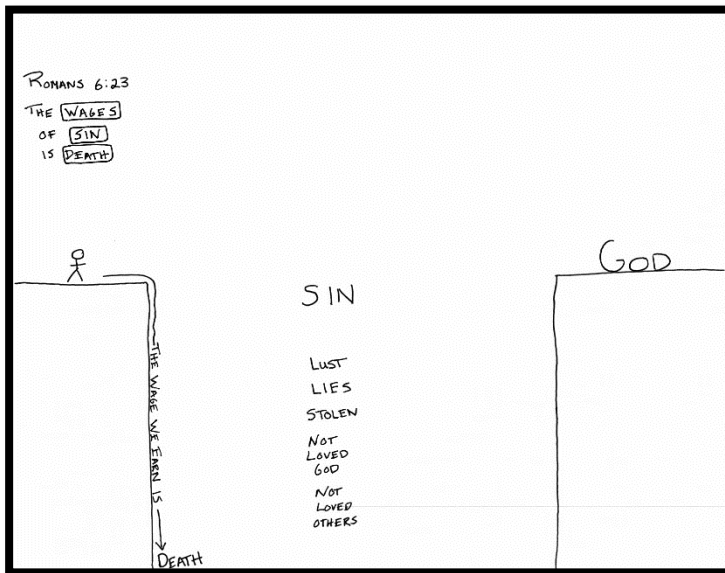 ROMANS 6:23
THE WAGES
OF SIN
IS DEATH
GOD
SIN
LUST
LIES
STOLEN
NOT
LOVED
GOD
NOT
LOVED
OTHERS
THE WAGE WE EARN IS
DEATH